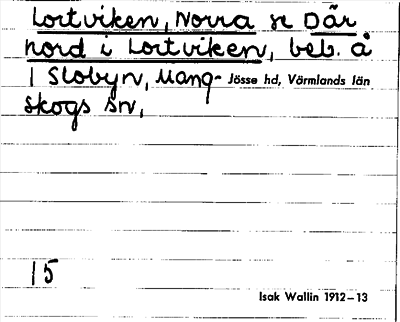 Lortviken, Norra se Där
nord i Lortviken, beb. å
1 Slobyn, Mang- Jösse hd, Värmlands län
skogs sn,
15
Isak Wallin 1912–13